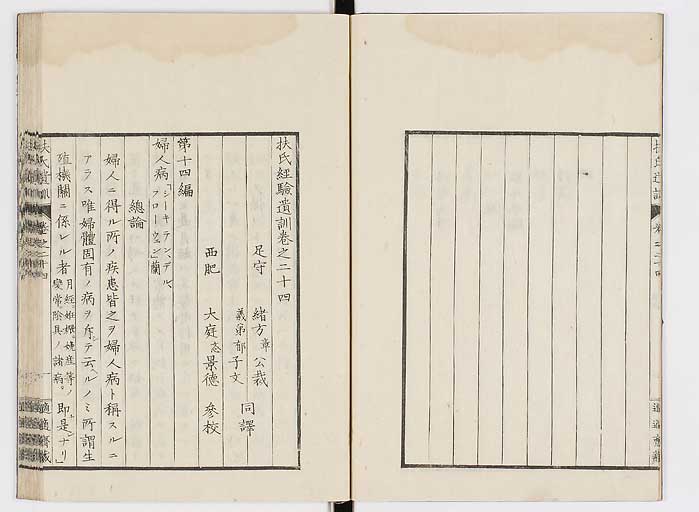 扶氏經驗遺訓卷之二十四
足守 緒方章公裁
義弟郁子文 同譯
西肥 大庭忞景德 參校
第十四編
婦人病「シーキテン、デル、フローウェン」蘭
總論
婦人ニ得ル所ノ疾患皆之ヲ婦人病ト稱スルニ
アラス唯婦體固有ノ病ヲ斥シテ云ヘルノミ所謂生
殖機關ニ係レル者月經、姙娠、娩産等ノ變常、陰具ノ諸病。即是ナリ
扶氏遺訓 卷之二十四
適適齋藏